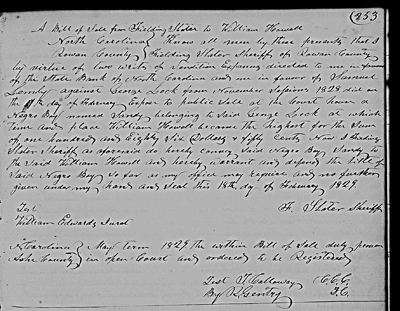 (253
A Bill of Sale from Fielding Slater to William Howell
North Carolina } Know all men by these presents that I
Rowan County } Fielding Slater Sheriff of Rowan County
by virtue of two writs of Vendition Exponas directed to me in favour
of the State Bank of North Carolina and one in favour of Samuel
Lemly against George Lock from November Sessions 1828 did on
the day of February Expose to public Sale at the Court house a
Negro Boy named Sandy belonging to Said George Lock at which
time and place William Howell became the highest for the Sum
of one hundred and Eighty Six Dollars & fifty Cents Now I
Slater Sheriff as aforesaid do hereby Convey Said Negro Boy Sandy to
the Said William Howell and hereby warrant and defend the title of
Said Negro Boy So far as my office may require and no further
given under my hand and Seal this 18th day of February 1829.
F. Slater Sheriff
Test
William Edwards Jurat
N Carolina } May term 1829 the within Bill of Sale duly proven
Ashe County } in open Court and ordered to be Registered
Test T Calloway C.C.C.
By R Gentry D.C.